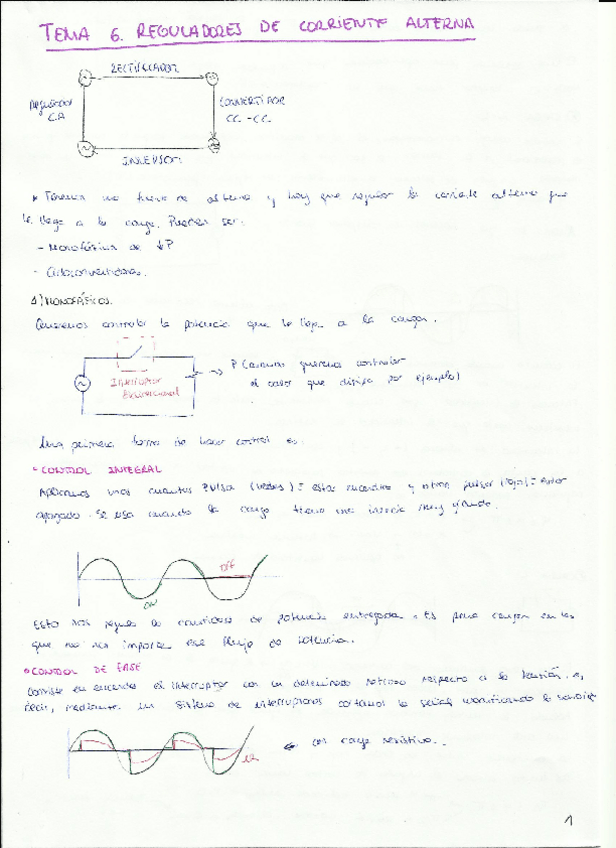 TEMA 6. REGULADORES DE CORRIENTE ALTERNA
RECTIFICADOR
Regulador CA
CONVERTIDOR CC-CC
INVERSOR
* Tenemos una fuente de alterna y hay que regular la corriente alterna que
le llega a la carga. Pueden ser:
- Monofásicos de ↓P
- Cicloconvertidores.
1) MONOFÁSICOS.
Queremos controlar la potencia que le llega a la carga.
Interruptor Bidireccional
P (cuando queremos controlar
el calor que disipa por ejemplo)
Una primera forma de hacer control es:
* CONTROL INTEGRAL
Aplicamos unos cuantos pulsos (verdes) = estar encendido y otros pulsos (rojos) = estar
apagado. Se usa cuando la carga tiene una inercia muy grande.
OFF
ON
Esto nos regula la cantidad de potencia entregada. Es para cargas en las
que no nos importa ese flujo de potencia.
* CONTROL DE FASE
Consiste en encender el interruptor con un determinado retraso respecto a la tensión. Es
decir, mediante un sistema de interruptores cortamos la señal modificando la
← con carga resistiva.
1